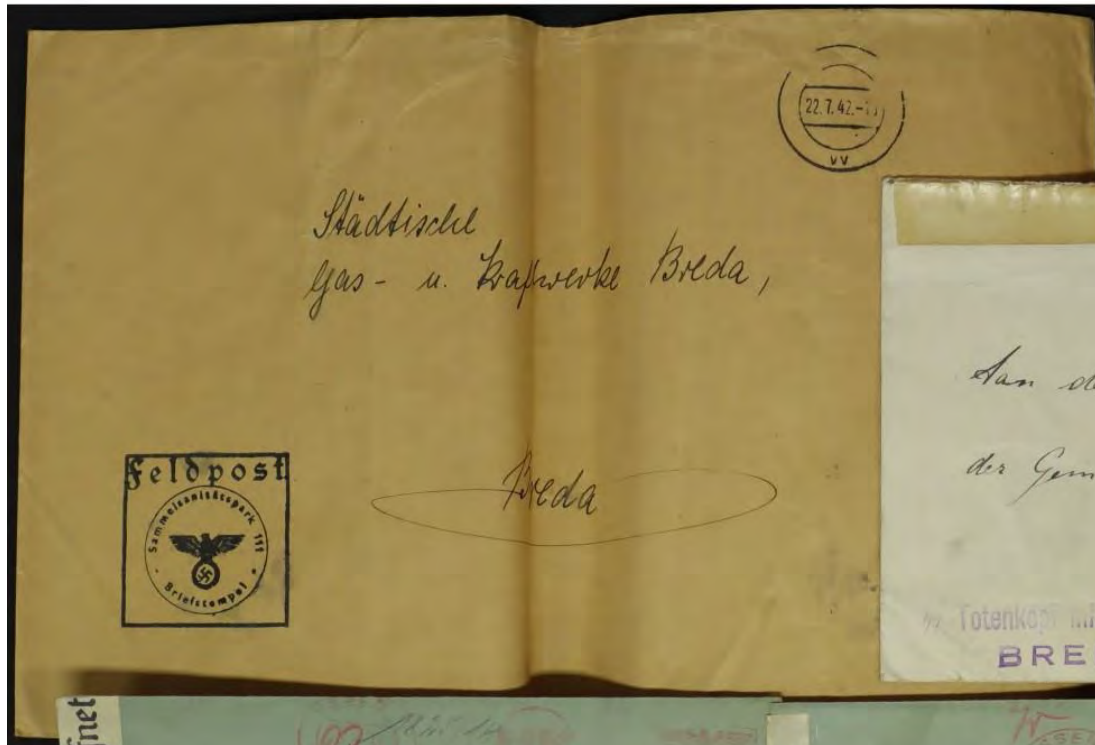 22.7.42.-
vv
Städtische
Gas- u. Kraftwerke Breda,
Breda
Feldpost
Sammelsanitätspark 111
Briefstempel
Aan
der Gem
Totenkopf
BRE
fnet